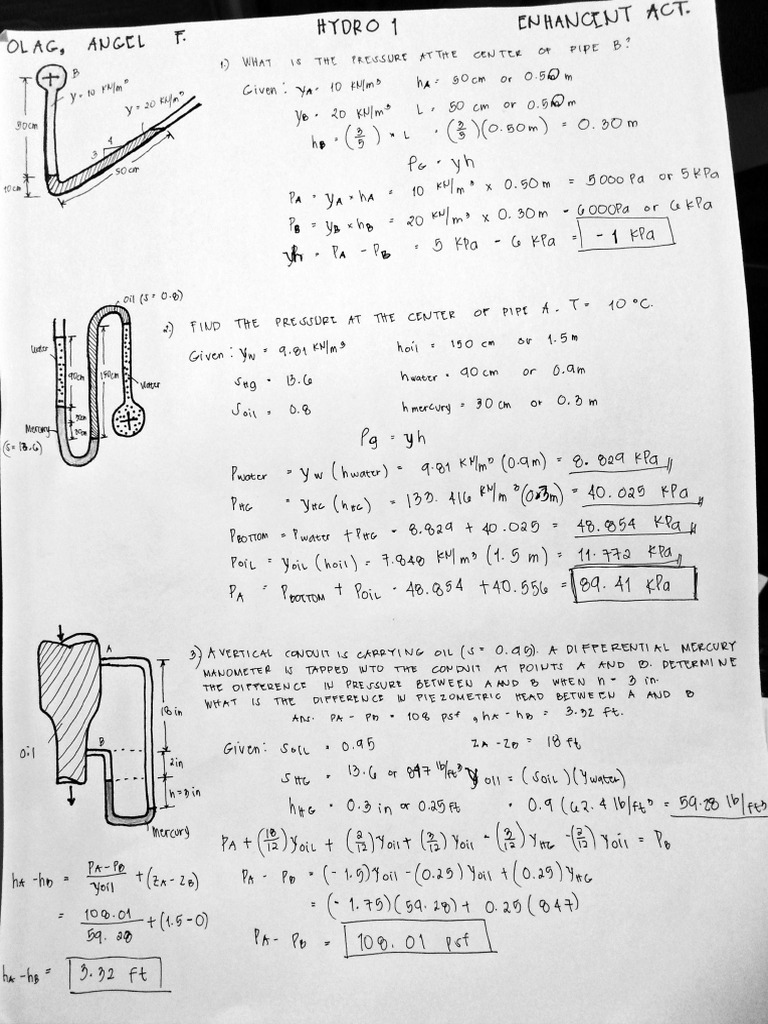 OLAG, ANGEL F.
HYDRO 1
ENHANCENT ACT.
1) WHAT IS THE PRESSURE AT THE CENTER OF PIPE B?
B
γ = 10 KN/m³
γ = 20 KN/m³
50cm
10cm
3
4
50cm
Given: γA = 10 KN/m³ hA = 50cm or 0.50 m
γB = 20 KN/m³ L = 50 cm or 0.50 m
hB = (3/5) × L = (3/5)(0.50m) = 0.30 m
PG = γh
PA = γA × hA = 10 KN/m³ × 0.50m = 5000 Pa or 5 KPa
PB = γB × hB = 20 KN/m³ × 0.30m = 6000Pa or 6 KPa
= PA - PB = 5 KPa - 6 KPa = -1 KPa
2) FIND THE PRESSURE AT THE CENTER OF PIPE A. T = 10 °C.
Oil (S = 0.8)
Water
90cm
150cm
Water
Mercury
(S = 13.6)
Given: γW = 9.81 KN/m³ hoil = 150 cm or 1.5m
SHg = 13.6 hwater = 90cm or 0.9m
Soil = 0.8 hmercury = 30 cm or 0.3 m
Pg = γh
Pwater = γw (hwater) = 9.81 KN/m³ (0.9m) = 8.829 KPa
PHG = γHG (hHG) = 133.416 KN/m³ (0.3m) = 40.025 KPa
PBOTTOM = Pwater + PHG = 8.829 + 40.025 = 48.854 KPa
POIL = γOIL (hoil) = 7.848 KN/m³ (1.5 m) = 11.772 KPa
PA = PBOTTOM + POIL = 48.854 + 40.556 = 89.41 KPa
3) A VERTICAL CONDUIT IS CARRYING OIL (S = 0.95). A DIFFERENTIAL MERCURY
MANOMETER IS TAPPED INTO THE CONDUIT AT POINTS A AND B. DETERMINE
THE DIFFERENCE IN PRESSURE BETWEEN A AND B WHEN h = 3 in.
WHAT IS THE DIFFERENCE IN PIEZOMETRIC HEAD BETWEEN A AND B
Ans. PA - PB = 108 psf, hA - hB = 3.32 ft.
A
18 in
B
Oil
2in
h=3 in
Mercury
Given: SOIL = 0.95 ZA - ZB = 18 ft
SHG = 13.6 or 847 lb/ft³ γoil = (Soil)(γwater)
hHG = 0.3 in or 0.25 ft = 0.9 (62.4 lb/ft³ = 59.28 lb/ft³
PA + (18/12)γOIL + (2/12)γoil + (3/12)γoil - (3/12)γHG - (2/12)γoil = PB
PA - PB = (-1.5)γoil - (0.25)γoil + (0.25)γHG
= (-1.75)(59.28) + 0.25 (847)
PA - PB = 108.01 psf
hA - hB = PA - PB / γoil + (ZA - ZB)
= 108.01 / 59.28 + (1.5 - 0)
hA - hB = 3.32 ft